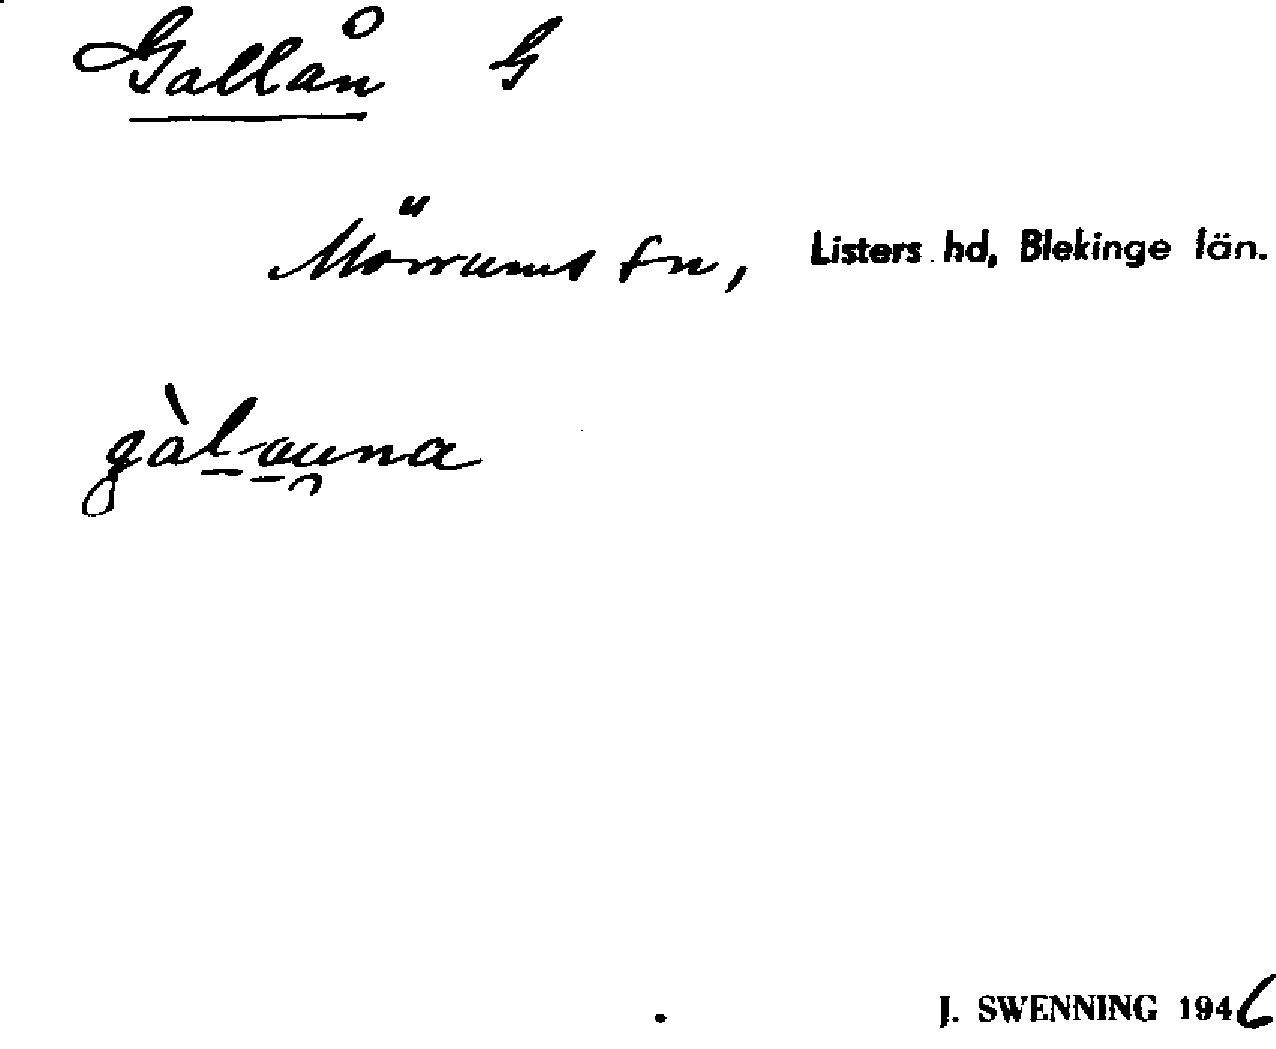 Gallån G
Mörrums sn, Listers hd, Blekinge län.
gàl-auna
J. SWENNING 1946